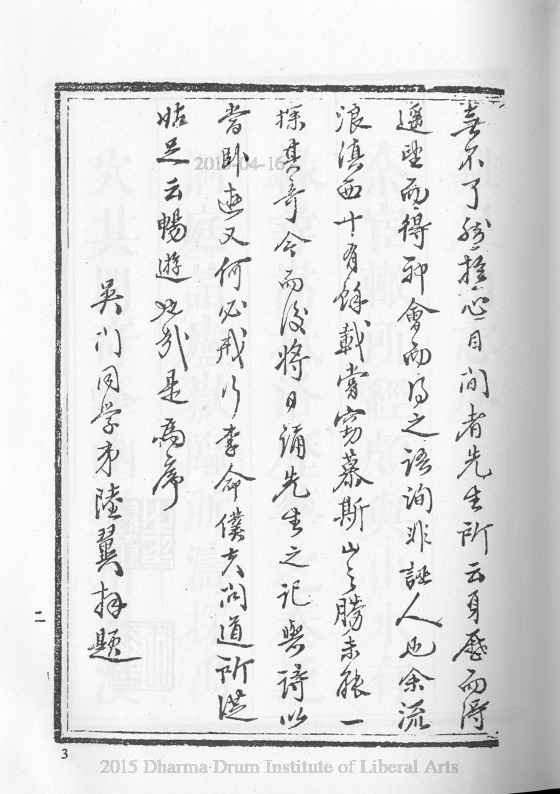 喜不了然於心目間者先生所云身歷而得
遥望而得神會而得之語洵非誣人也余流
浪滇西十有餘載嘗竊慕斯山之勝未能一
探其奇今而後將日誦先生之记與詩以
當卧遊又何必戒行李命僕夫问道所從
始足云暢遊也哉是為序
吳门同学弟陸翼拜題
二
3
2015-04-16
2015 Dharma Drum Institute of Liberal Arts